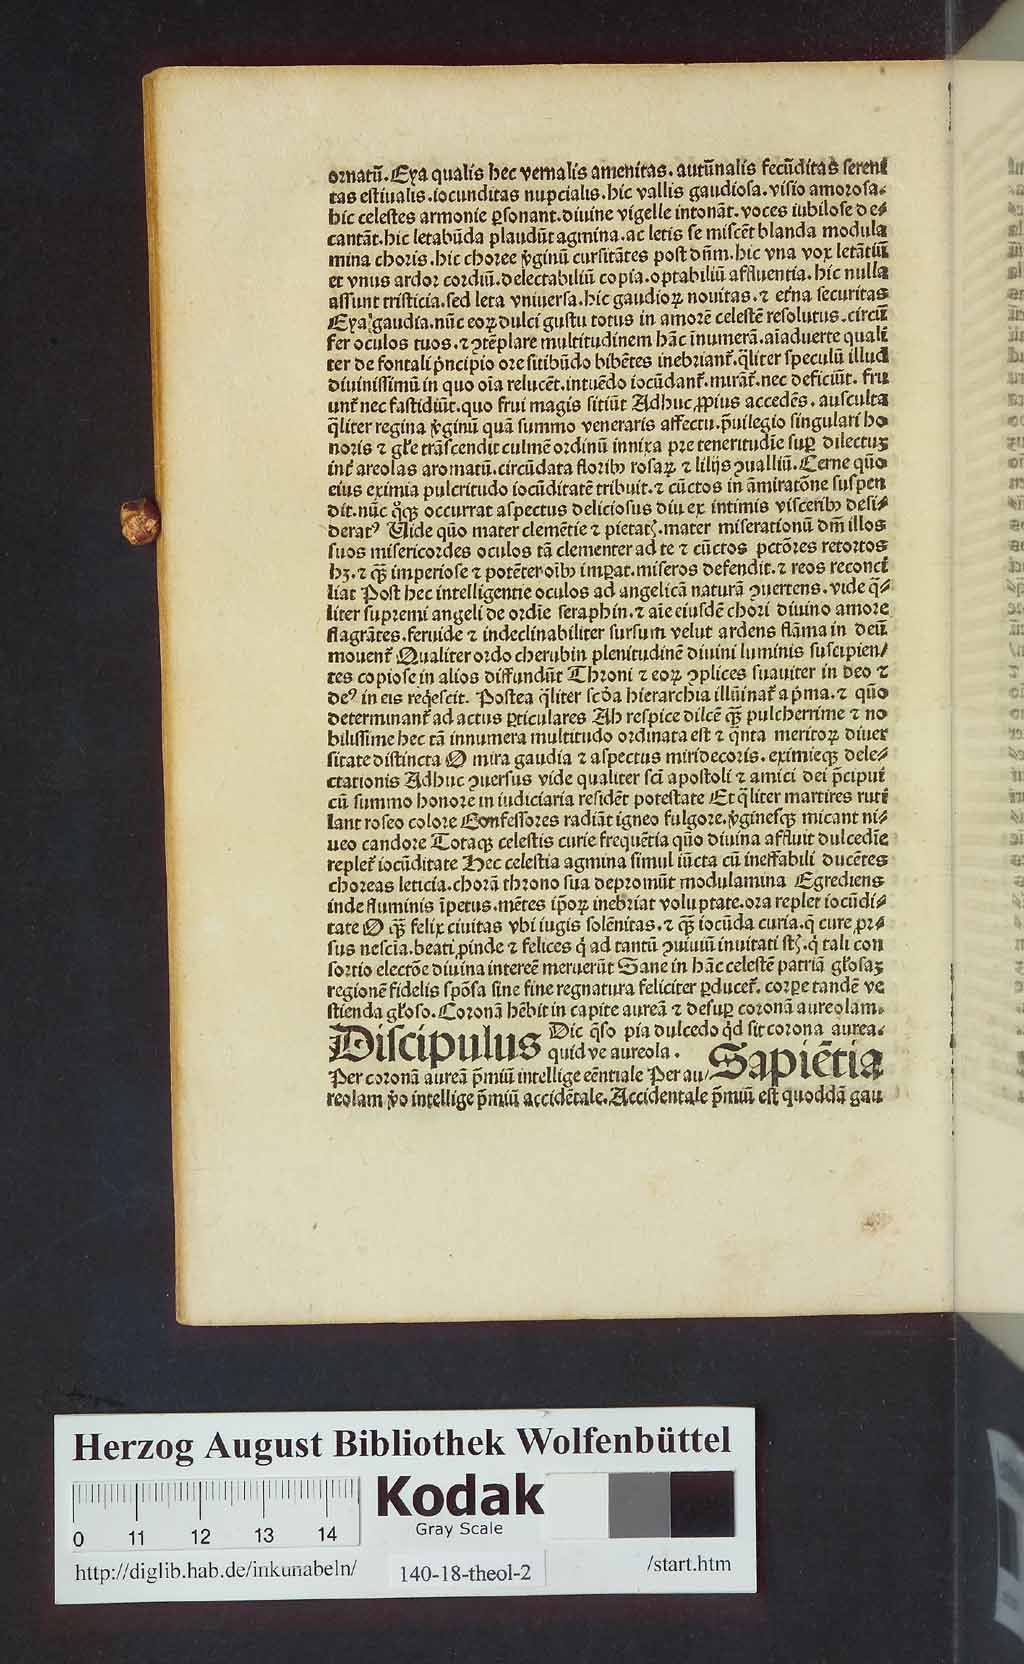 ornatū. Eya qualis hec vernalis amenitas. autūnalis fecūditas sereni
tas estiualis. iocunditas nupcialis. hic vallis gaudiosa. visio amorosa.
hic celestes armonie ꝑsonant. diuine vigelle intonāt. voces iubilose de⸗
cantāt. hic letabūda plaudūt agmina. ac letis se miscēt blanda modula
mina choris. hic choree v̄ginū cursitātes post dūm. hic vna vox letātiū
et vnus ardor cordiū. delectabiliū copia. optabiliū affluentia. hic nulla
assunt tristicia. sed leta vniuersa. hic gaudioꝝ nouitas. ⁊ et̄na securitas
Eya gaudia. nūc eoꝝ dulci gustu totus in amorē celestē resolutus. circū
fer oculos tuos. ⁊ ꝯtēplare multitudinem hāc īnumerā. aīaduerte quali
ter de fontali pͥncipio ore sitibūdo bibētes inebrianṫ. q̄liter speculū illud
diuinissimū in quo oīa relucēt. intuēdo iocūdanṫ. mirāṫ. nec deficiūt. fru
unṫ nec fastidiūt. quo frui magis sitiūt Adhuc ꝓpius accedēs. ausculta
q̄liter regina v̄ginū quā summo veneraris affectu. p̄uilegio singulari ho
noris ⁊ gl̄e trāscendit culmē ordinū innixa pre teneritudīe suꝑ dilectuꝫ
inṫ areolas aromatū. circūdata floribꝰ rosaꝝ ⁊ lilijs ꝯualliū. Cerne quō
eius eximia pulcritudo iocūditatē tribuit. ⁊ cūctos in āmiratōne suspen
dit. nūc qͦqꝫ occurrat aspectus deliciosus diu ex intimis visceribꝰ desi⸗
deratꝰ Uide quō mater clemētie ⁊ pietatꝭ. mater miserationū dm̄ illos
suos misericordes oculos tā clementer ad te ⁊ cūctos pctōres retortos
hꝫ. ⁊ qꝫ̄ imperiose ⁊ potēter oībꝰ imꝑat. miseros defendit. ⁊ reos reconci
liat Post hec intelligentie oculos ad angelicā naturā ꝯuertens. vide q̄⸗
liter supremi angeli de ordīe seraphin. ⁊ aīe eiusdē chori diuino amore
flagrātes. feruide ⁊ indeclinabiliter sursum velut ardens flāma in deū
mouenṫ Qualiter ordo cherubin plenitudinē diuini luminis suscipien/
tes copiose in alios diffundūt Throni ⁊ eoꝝ ꝯplices suauiter in deo ⁊
deꝰ in eis reqͥescit. Postea q̄liter scōa hierarchia illūinaṫ a pͥma. ⁊ quō
determinanṫ ad actus ꝑticulares Ah respice dilcē qꝫ̄ pulcherrime ⁊ no
bilissime hec tā innumera multitudo ordinata est ⁊ qͥnta meritoꝝ diuer
sitate distincta O mira gaudia ⁊ aspectus miridecoris. eximieqꝫ dele⸗
ctationis Adhuc ꝯuersus vide qualiter scī apostoli ⁊ amici dei p̄cipui
cū summo honore in iudiciaria residēt potestate Et q̄liter martires ruti
lant roseo colore Confessores radiāt igneo fulgore. v̄ginesqꝫ micant ni⸗
ueo candore Totaqꝫ celestis curie frequētia quō diuina affluit dulcedīe
repleṫ iocūditate Hec celestia agmina simul iūcta cū ineffabili ducētes
choreas leticia. chorā throno sua depromūt modulamina Egrediens
inde fluminis īpetus. mētes ip̄oꝝ inebriat voluptate. ora replet iocūdi⸗
tate O qꝫ̄ felix ciuitas vbi iugis solēnitas. ⁊ qꝫ̄ iocūda curia. q̄ cure pr⸗
sus nescia. beati ꝓinde ⁊ felices qͥ ad tantū ꝯuiuiū inuitati stꝭ. qͥ tali con
sortio electōe diuina intereē meruerūt Sane in hāc celestē patriā gl̄osaꝫ
regionē fidelis spōsa sine fine regnatura feliciter ꝑduceṫ. corꝑe tandē ve
stienda gl̄oso. Coronā hēbit in capite aureā ⁊ desuꝑ coronā aureolam.
Discipulus Dic q̄so pia dulcedo qͥd sit corona aurea.
quid ve aureola. Sapiētia
Per coronā aureā p̄miū intellige eēntiale Per au/
reolam v̄o intellige p̄miū accidētale. Accidentale p̄miū est quoddā gau
Herzog August Bibliothek Wolfenbüttel
0 11 12 13 14
Kodak
Gray Scale
http://diglib.hab.de/inkunabeln/ 140-18-theol-2 /start.htm